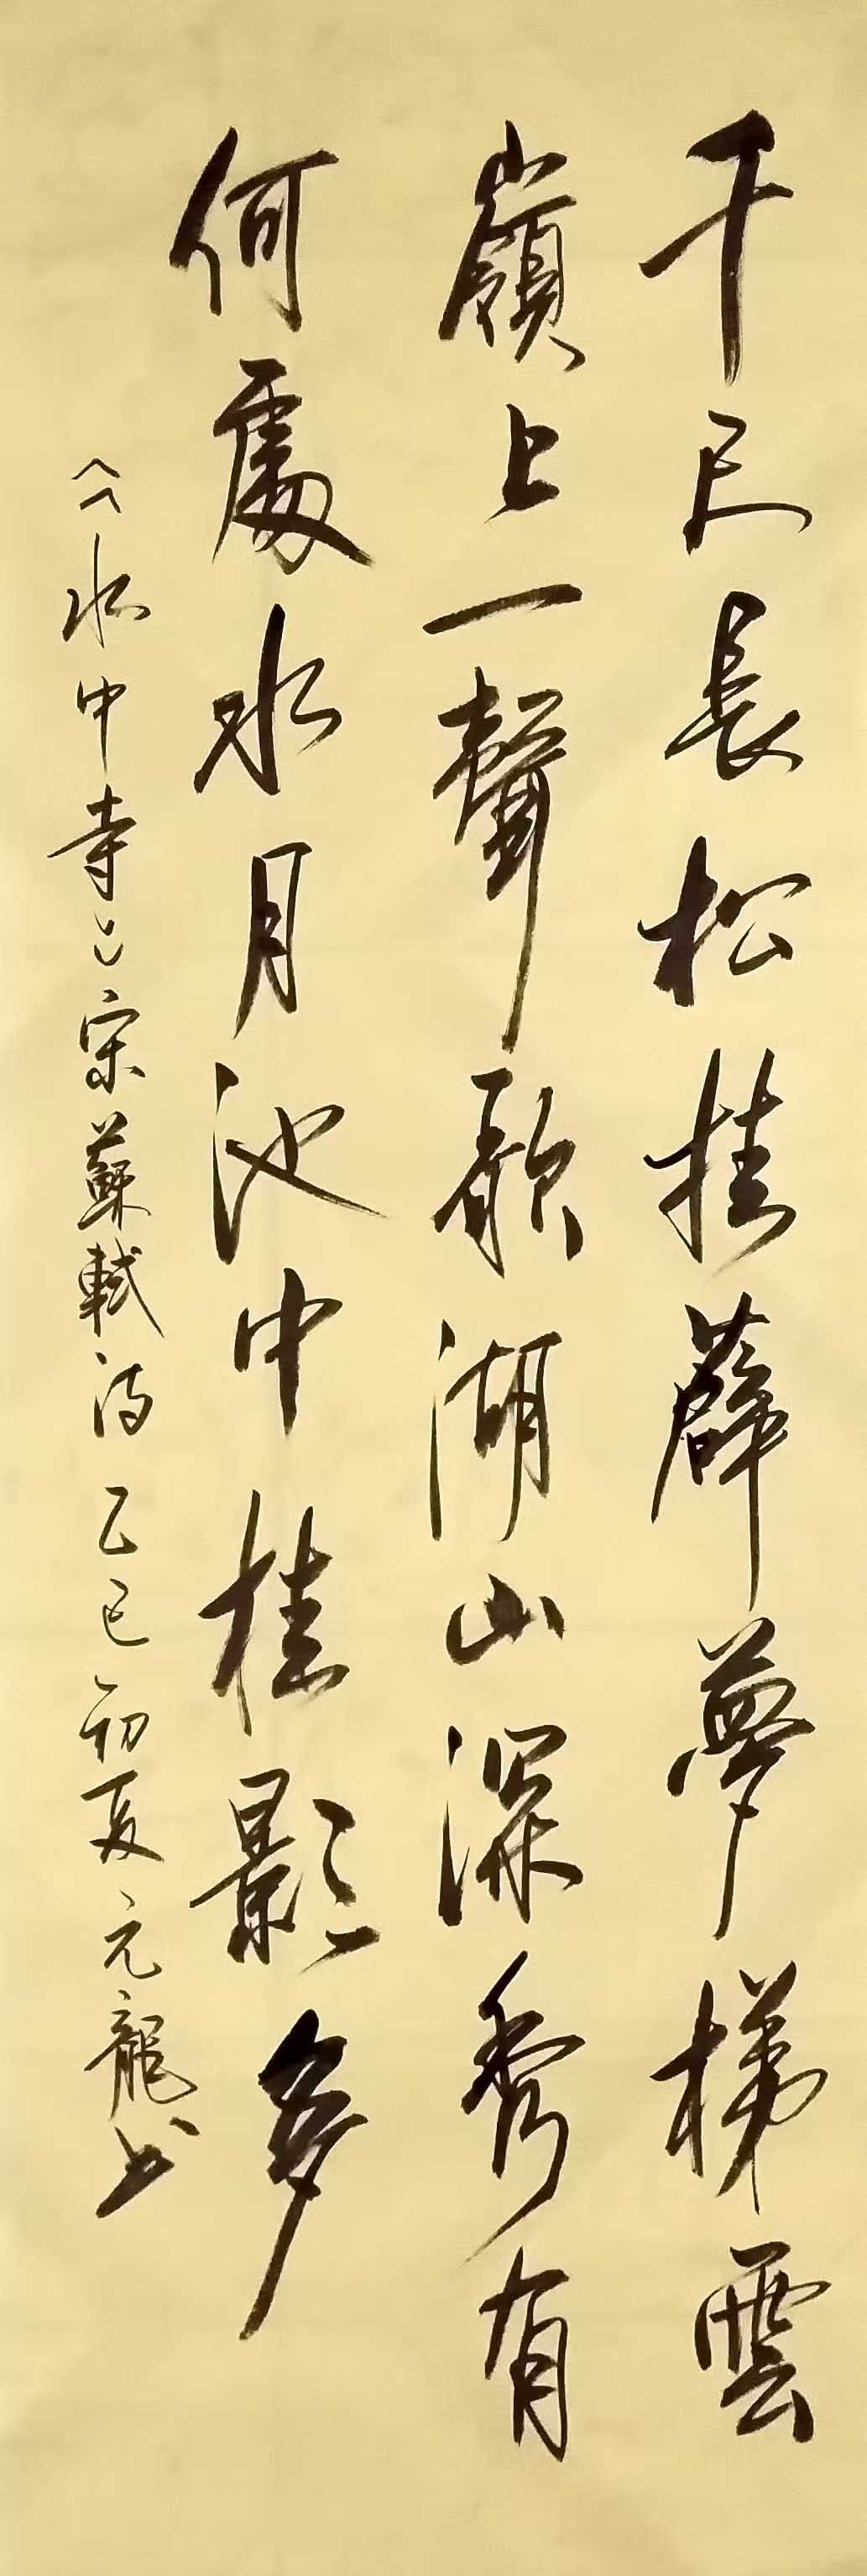 千尺長松挂薜夢梯雲
嶺上一聲歌湖山深秀有
何處水月池中桂影多
《水中寺》宋蘇軾詩 乙巳初夏 元龍书